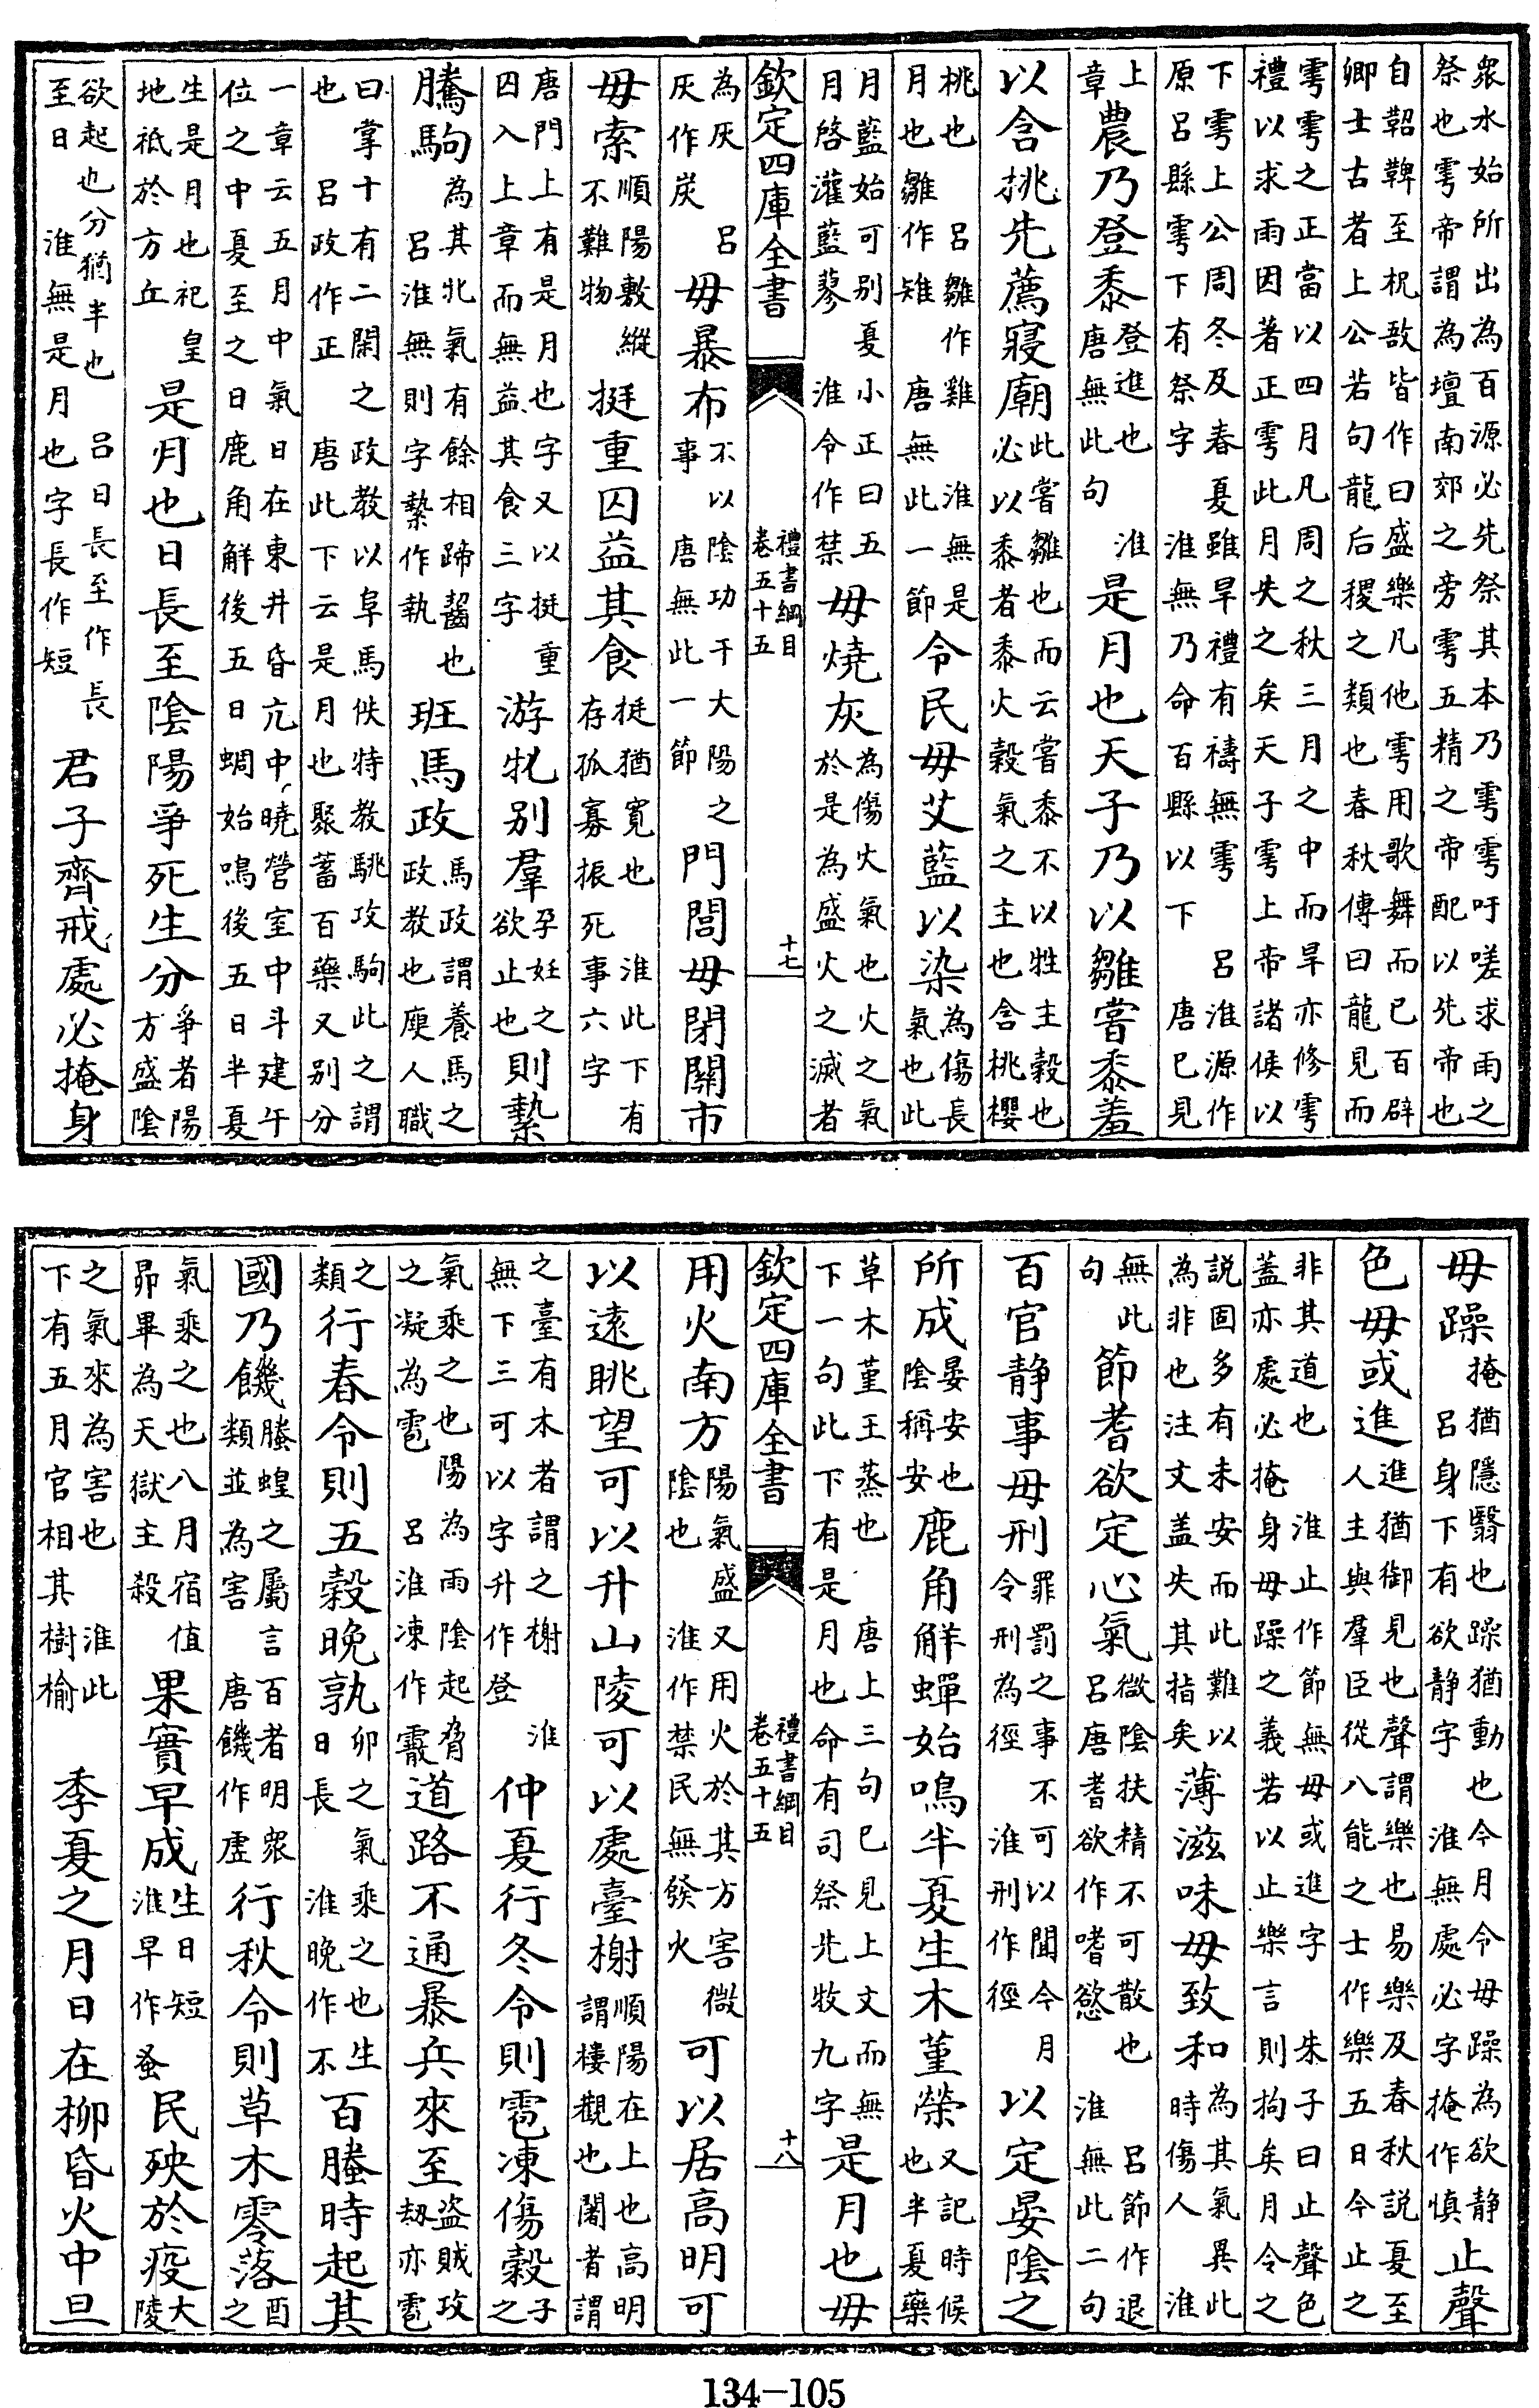 眾水始所出為百源必先祭其本乃雩雩吁嗟求雨之
祭也雩帝謂為壇南郊之旁雩五精之帝配以先帝也
自鞀鞞至柷敔皆作曰盛樂凡他雩用歌舞而已百辟
卿士古者上公若句龍后稷之類也春秋傳曰龍見而
雩雩之正當以四月凡周之秋三月之中而旱亦修雩
禮以求雨因著正雩此月失之矣天子雩上帝諸侯以
下雩上公周冬及春夏雖旱禮有禱無雩 呂淮源作
原呂縣雩下有祭字 淮無乃命百縣以下 唐已見
上章 農乃登黍 登進也 淮唐無此句 是月也天子乃以雛嘗黍羞
以含桃先薦寢廟 此嘗雛也而云嘗黍不以牲主穀也必以黍者黍火穀氣之主也含桃櫻
桃也 呂雛作雞 淮無是月也雛作雉 唐無此一節 令民毋艾藍以染 為傷長氣也此
月藍始可別夏小正曰五月啓灌藍蓼 淮令作禁 毋燒灰 為傷火氣也火之氣於是為盛火之滅者
欽定四庫全書 禮書綱目 卷五十五 十七
為灰 呂灰作炭 毋暴布 不以陰功干大陽之事 唐無此一節 門閭毋閉關市
毋索 順陽敷縱不難物 挺重囚益其食 挺猶寬也 淮此下有存孤寡振死事六字
唐門上有是月也字又以挺重囚入上章而無益其食三字 游牝別羣 孕妊之欲止也 則縶
騰駒 為其牝氣有餘相蹄齧也 呂淮無則字縶作執 班馬政 馬政謂養馬之政教也庾人職
曰掌十有二閑之政教以阜馬佚特教駣攻駒此之謂
也 呂政作正 唐此下云是月也聚蓄百藥又別分
一章云五月中氣日在東井昏亢中曉營室中斗建午
位之中夏至之日鹿角解後五日蜩始鳴後五日半夏
生是月也祀皇地祇於方丘 是月也日長至陰陽爭死生分 爭者陽方盛陰
欲起也分猶半也 呂日長至作長至日 淮無是月也字長作短 君子齊戒處必掩身
毋躁 掩猶隱翳也躁猶動也今月令毋躁為欲静 呂身下有欲静字 淮無處必字掩作慎 止聲
色毋或進 進猶御見也聲謂樂也易樂及春秋説夏至人主與羣臣從八能之士作樂五日今止之
非其道也 淮止作節無毋或進字 朱子曰止聲色
蓋亦處必掩身毋躁之義若以止樂言則拘矣月令之
説固多有未安而此難以為非也注文蓋失其指矣 薄滋味毋致和 為其氣異此時傷人 淮
無此句 節耆欲定心氣 微陰扶精不可散也 呂節作退 呂唐耆欲作嗜慾 淮無此二句
百官静事毋刑 罪罰之事不可以聞今月令刑為徑 淮刑作徑 以定晏陰之
所成 晏安也陰稱安 鹿角解蟬始鳴半夏生木堇榮 又記時候也半夏藥
草木堇王蒸也 唐上三句已見上文而無
下一句此下有是月也命有司祭先牧九字 是月也毋
欽定四庫全書 禮書綱目 卷五十五 十八
用火南方 陽氣盛又用火於其方害微陰也 淮作禁民無發火 可以居高明可
以遠眺望可以升山陵可以處臺榭 順陽在上也高明謂樓觀也闍者謂
之臺有木者謂之榭 淮無下三可以字升作登 仲夏行冬令則雹凍傷穀 子之
氣乘之也陽為雨陰起脅之凝為雹 呂淮凍作霰 道路不通暴兵來至 盜賊攻劫亦雹
之類 行春令則五穀晚孰 卯之氣乘之也生日長 淮晚作不 百螣時起其
國乃饑 螣蝗之屬言百者明眾類並為害 唐饑作虛 行秋令則草木零落 酉之
氣乘之也八月宿值昴畢為天獄主殺 果實早成 生日短 淮早作蚤 民殃於疫 大陵
之氣來為害也 淮此下有五月官相其樹榆 季夏之月日在柳昏火中旦
134-105